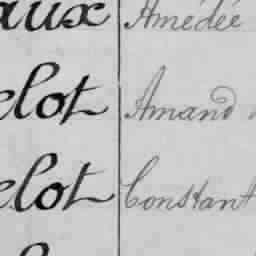 aux Amédée
elot Amand
elot Constant